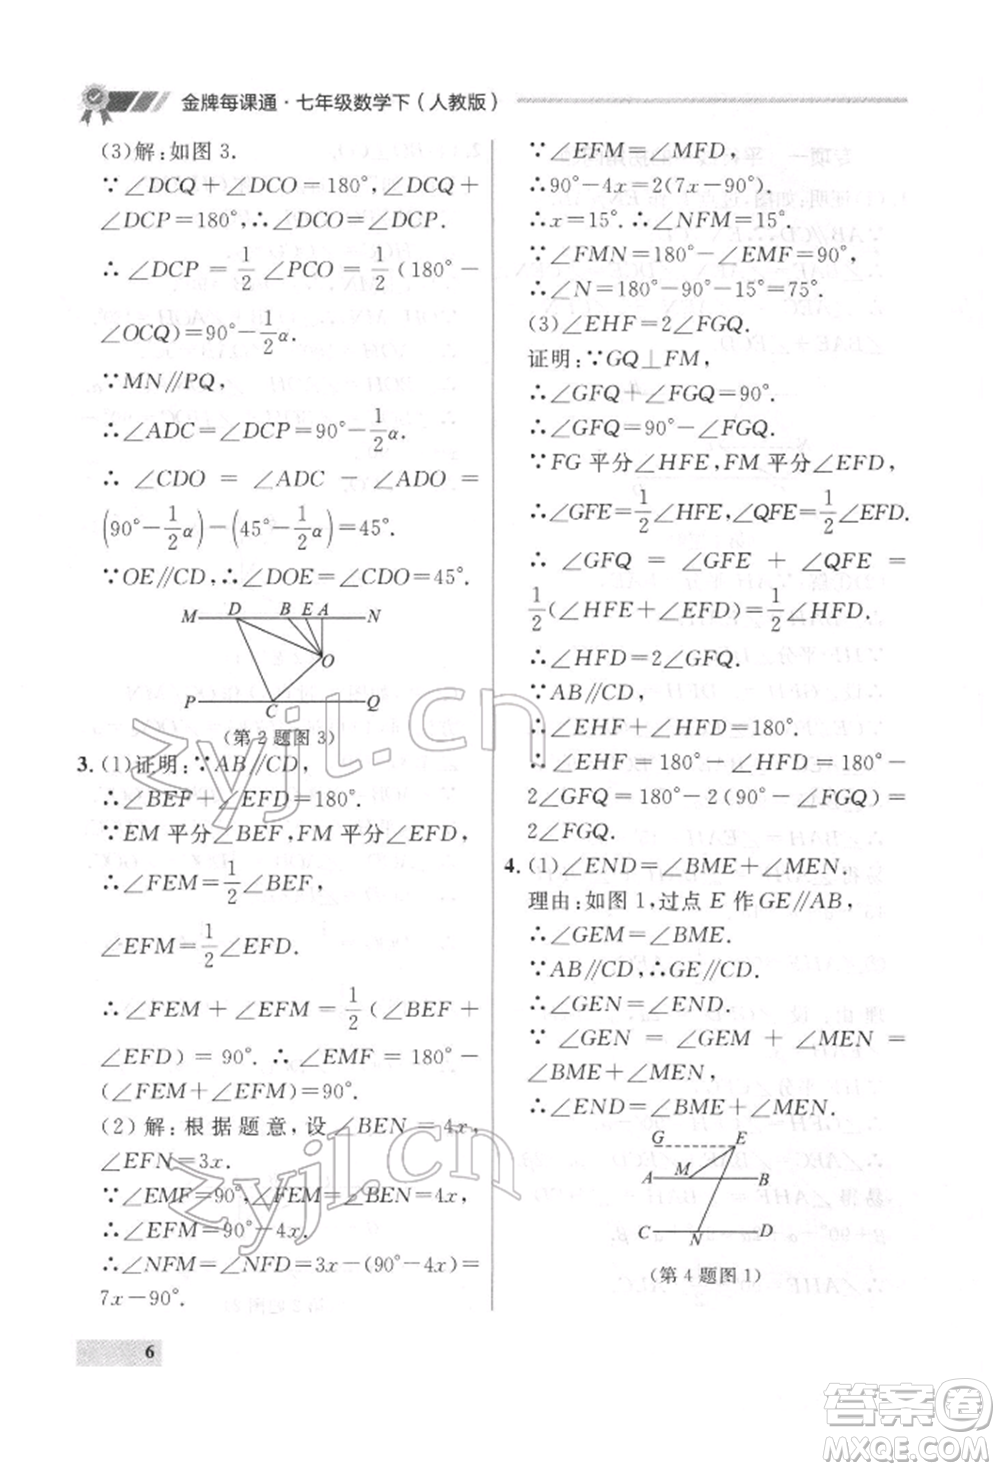 金牌每课通·七年级数学下（人教版）
(3)解:如图 3.
∵∠DCQ+∠DCO=180°,∠DCQ+
∠DCP=180°,∴∠DCO=∠DCP.
∴∠DCP=1/2∠PCO=1/2(180°-
∠OCQ)=90°-1/2α.
∵MN∥PQ,
∴∠ADC=∠DCP=90°-1/2α.
∴∠CDO=∠ADC-∠ADO=
(90°-1/2α)-(45°-1/2α)=45°.
∵OE∥CD,∴∠DOE=∠CDO=45°.
M D B E A N
O
P C Q
(第 2 题图 3)
3. (1)证明:∵AB∥CD,
∴∠BEF+∠EFD=180°.
∵EM 平分∠BEF,FM 平分∠EFD,
∴∠FEM=1/2∠BEF,
∠EFM=1/2∠EFD.
∴∠FEM+∠EFM=1/2(∠BEF+
∠EFD)=90°.∴∠EMF=180°-
(∠FEM+∠EFM)=90°.
(2)解:根据题意,设∠BEN=4x,
∠EFN=3x.
∵∠EMF=90°,∠FEM=∠BEN=4x,
∴∠EFM=90°-4x.
∴∠NFM=∠NFD=3x-(90°-4x)=
7x-90°.
∵∠EFM=∠MFD,
∴90°-4x=2(7x-90°).
∴x=15°.∴∠NFM=15°.
∵∠FMN=180°-∠EMF=90°,
∴∠N=180°-90°-15°=75°.
(3)∠EHF=2∠FGQ.
证明:∵GQ⊥FM,
∴∠GFQ+∠FGQ=90°.
∴∠GFQ=90°-∠FGQ.
∵FG 平分∠HFE,FM 平分∠EFD,
∴∠GFE=1/2∠HFE,∠QFE=1/2∠EFD.
∴∠GFQ=∠GFE+∠QFE=
1/2(∠HFE+∠EFD)=1/2∠HFD.
∴∠HFD=2∠GFQ.
∵AB∥CD,
∴∠EHF+∠HFD=180°.
∴∠EHF=180°-∠HFD=180°-
2∠GFQ=180°-2(90°-∠FGQ)=
2∠FGQ.
4. (1)∠END=∠BME+∠MEN.
理由:如图 1,过点 E 作GE∥AB,
∴∠GEM=∠BME.
∵AB∥CD,∴GE∥CD.
∴∠GEN=∠END.
∵∠GEN=∠GEM+∠MEN=
∠BME+∠MEN,
∴∠END=∠BME+∠MEN.
G E
A M B
C N D
(第 4 题图 1)
6
zyjl.cn
zyjl.cn
答案圈
MXQE.COM